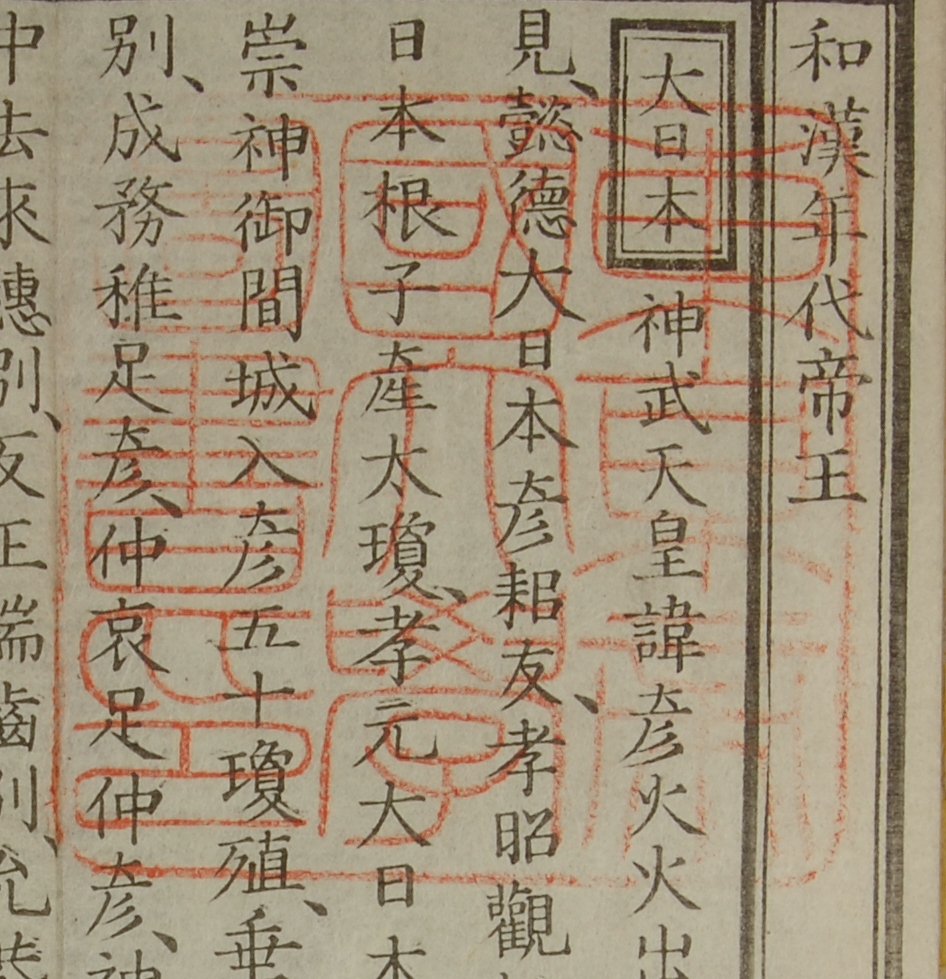 和漢年代帝王
大日本 神武天皇諱彦火火出
見、懿德大日本彦耜友、孝昭觀
日本根子彦太瓊、孝元大日本
崇神御間城入彦五十瓊殖、垂
別、成務稚足彦、仲哀足仲彦、神
中去來穗別、反正瑞齒別、允恭